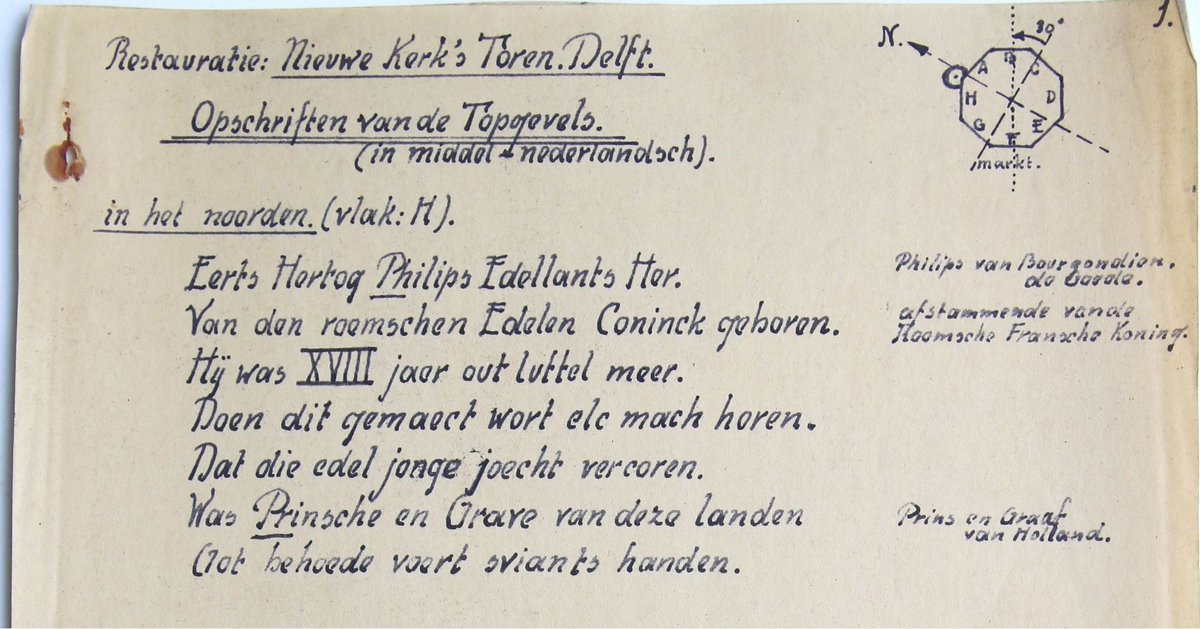 1.
Restauratie: Nieuwe Kerk's Toren. Delft.
N.
39°
A B C D E F G H
markt.
Opschriften van de Topgevels.
(in middel-nederlandsch).
in het noorden. (vlak: H).
Eerts Hertog Philips Edellants Her.
Philips van Bourgondien.
de Goede.
Van den roemschen Edelen Coninck geboren.
afstammende vande
Roomsche Fransche Koning.
Hij was XVIII jaer out luttel meer.
Doen dit gemaect wort elc mach horen.
Dat die edel jonge joecht vercoren.
Was Prinsche en Grave van deze landen
Prins en Graaf
van Holland.
Got behoede voert sviants handen.